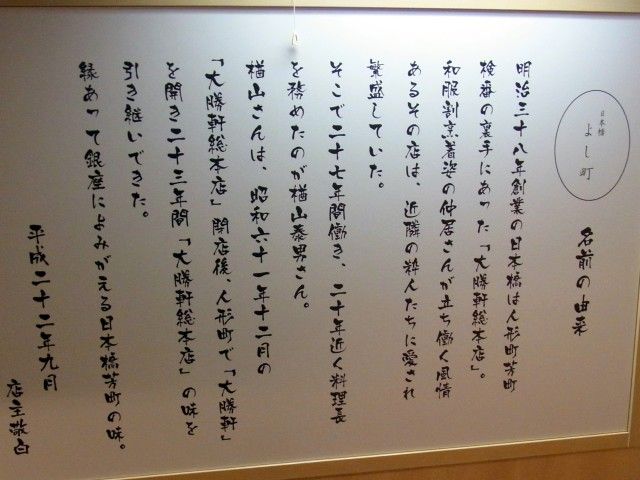 日本橋
よし町
名前の由来
明治三十八年創業の日本橋は人形町芳町
検番の裏手にあった「大勝軒総本店」。
和服割烹着姿の仲居さんが立ち働く風情
あるその店は、近隣の粋人たちに愛され
繁盛していた。
そこで二十七年間働き、二十年近く料理長
を務めたのが楢山泰男さん。
楢山さんは、昭和六十一年十二月の
「大勝軒総本店」閉店後、人形町で「大勝軒」
を開き二十三年間「大勝軒総本店」の味を
引き継いできた。
縁あって銀座によみがえる日本橋芳町の味。
平成二十二年九月
店主敬白